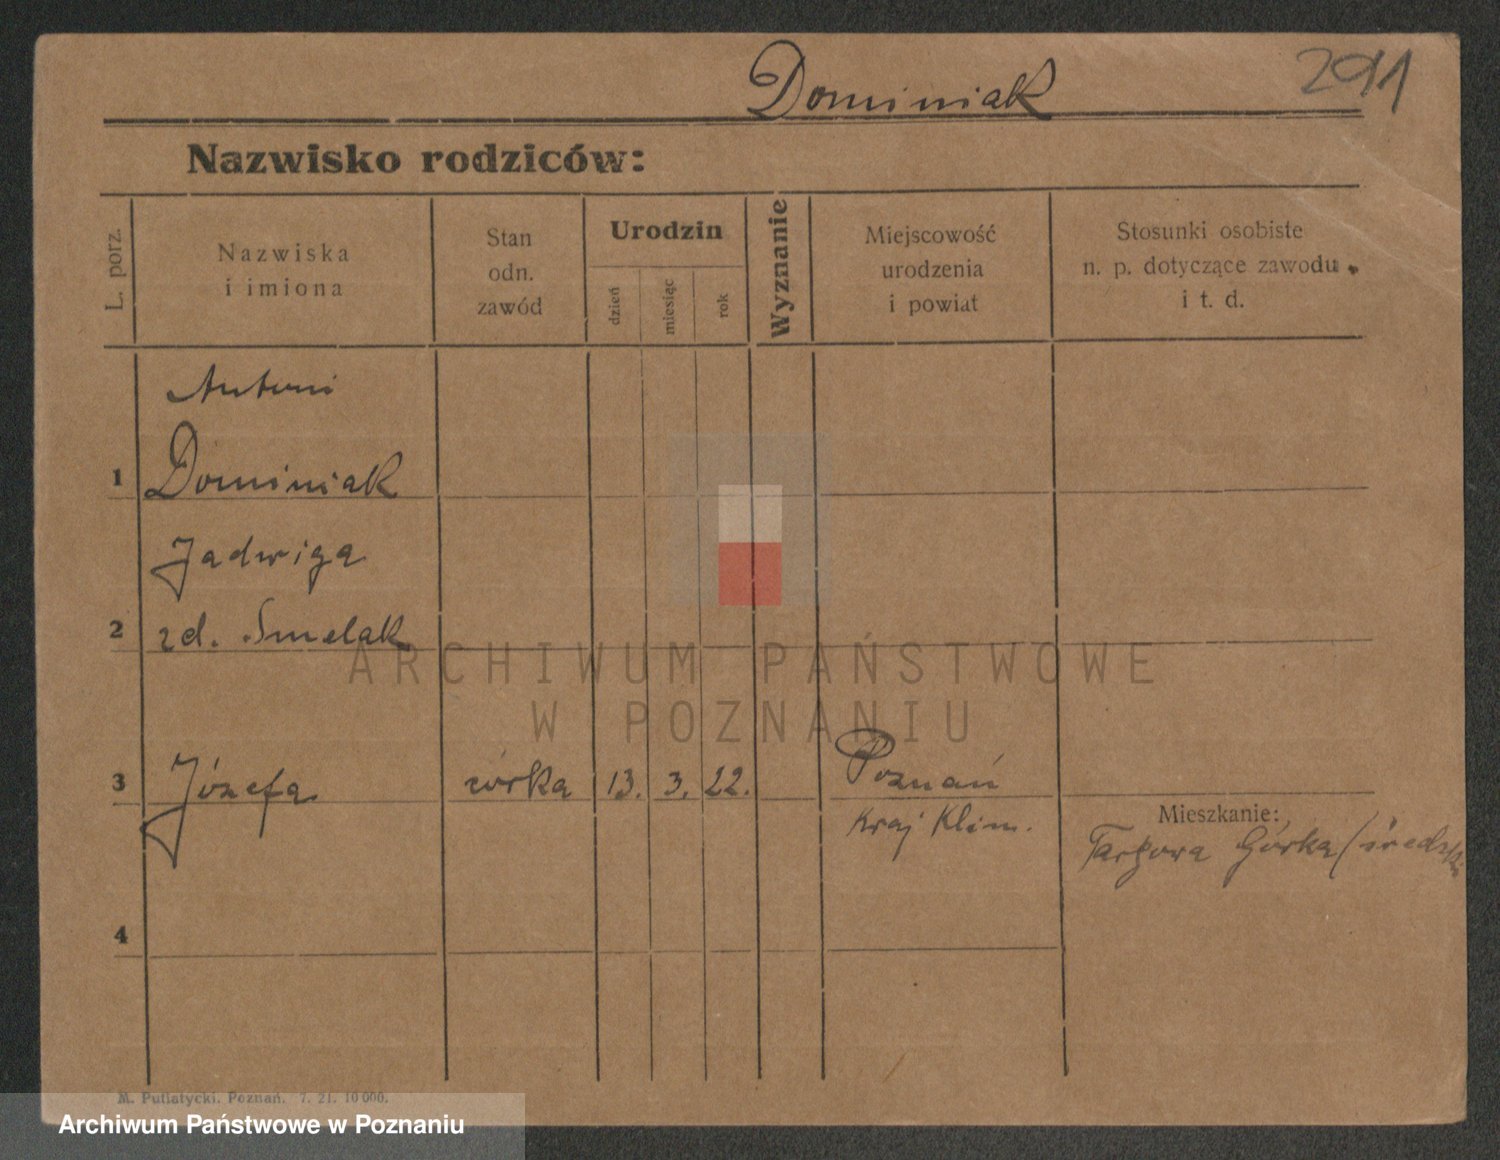 Dominiak
291
Nazwisko rodziców:
L. porz.
Nazwiska
i imiona
Stan
odn.
zawód
Urodzin
dzień
miesiąc
rok
Wyznanie
Miejscowość
urodzenia
i powiat
Stosunki osobiste
n. p. dotyczące zawodu
i t. d.
Antoni
1 Dominiak
Jadwiga
2 zd. Smelak
3 Józefa córka 13. 3. 22. Poznań
Kraj Klin.
Mieszkanie:
Targowa Górka / średzki
4
M. Putiatycki. Poznań. 7. 21. 10 000.
ARCHIWUM PAŃSTWOWE
W POZNANIU
Archiwum Państwowe w Poznaniu